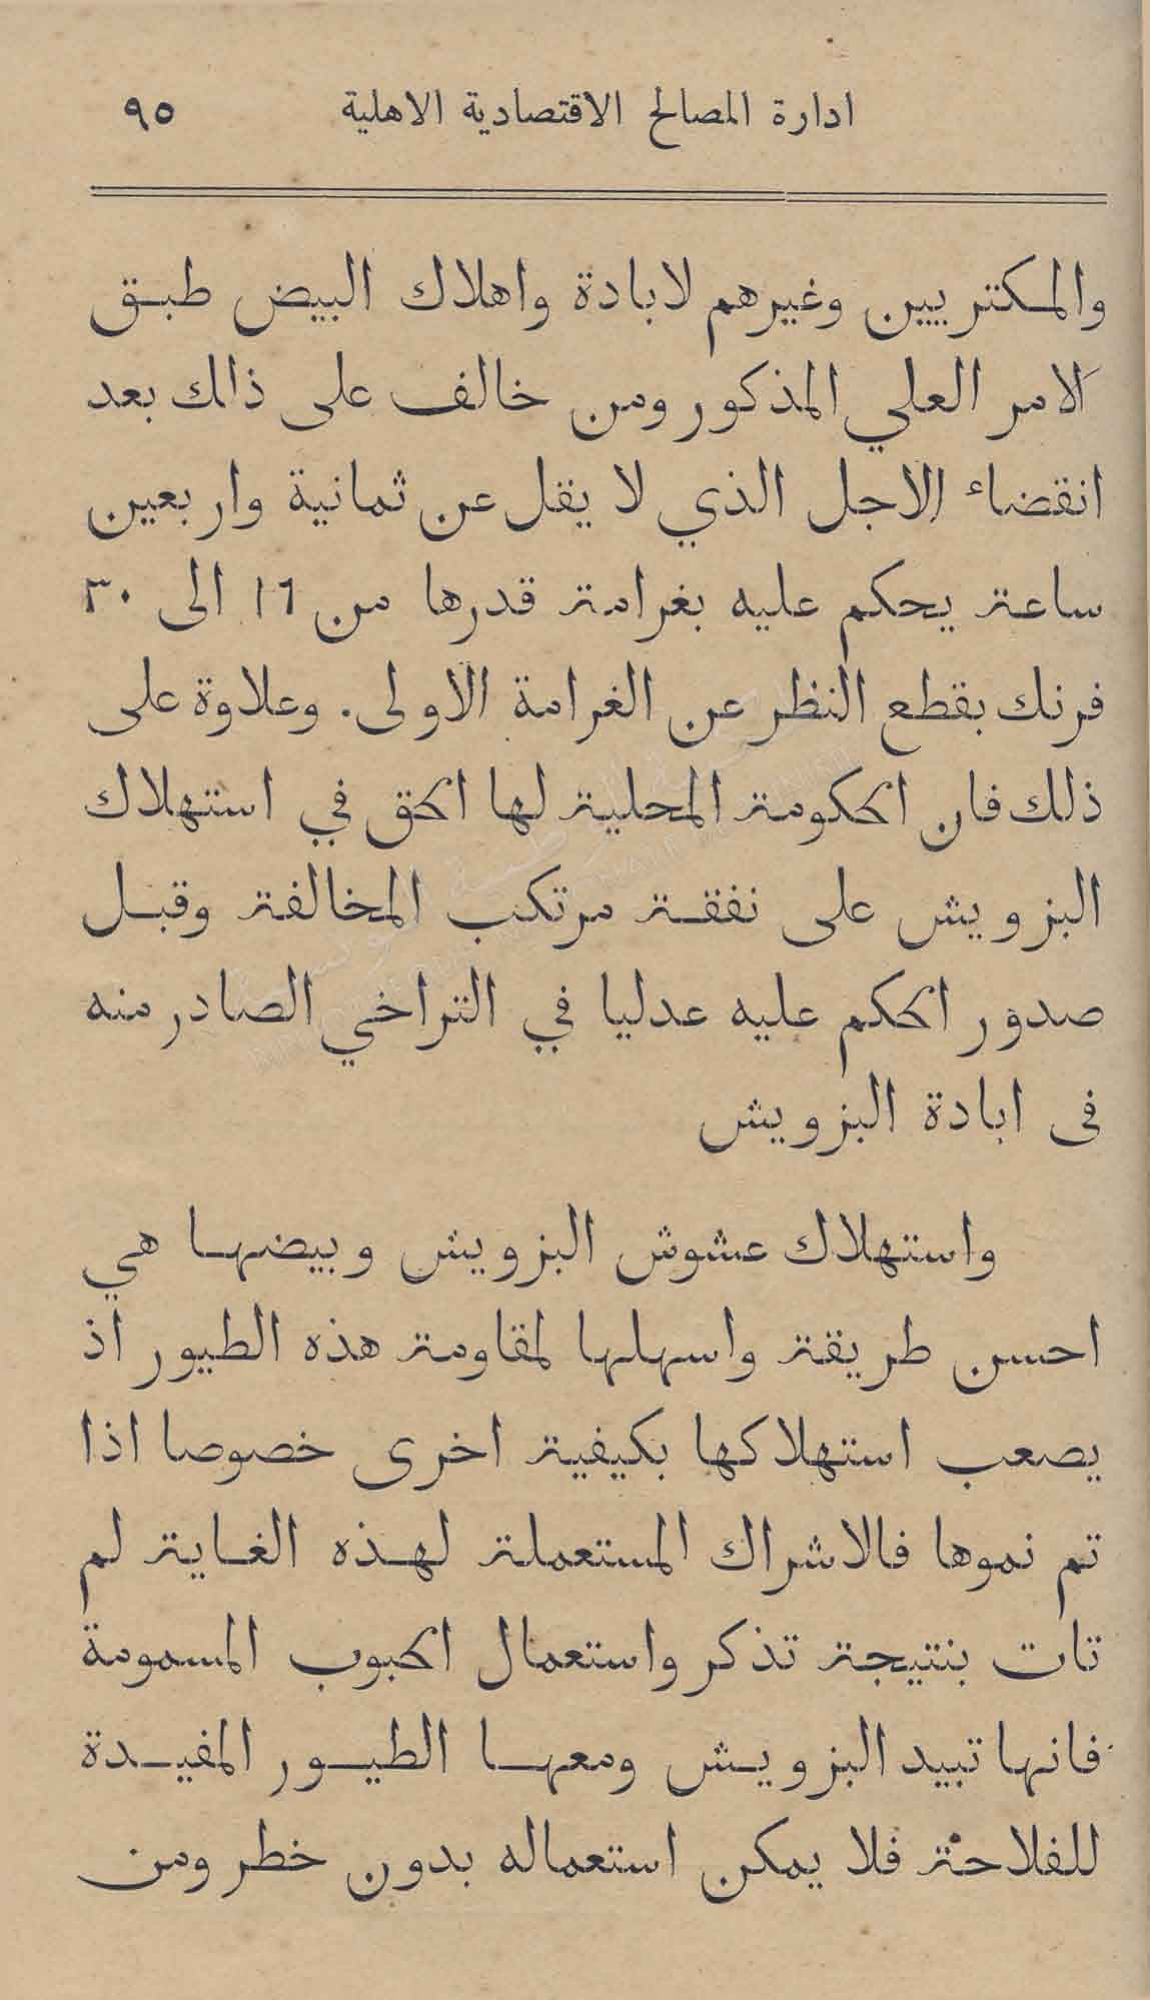 ادارة المصالح الاقتصادية الاهلية ٩٥
والمكتريين وغيرهم لابادة واهلاك البيض طبق
الامر العلي المذكور ومن خالف على ذلك بعد
انقضاء الاجل الذي لا يقل عن ثمانية واربعين
ساعة يحكم عليه بغرامة قدرها من ١٦ الى ٣٠
فرنك بقطع النظر عن الغرامة الاولى. وعلاوة على
ذلك فان الحكومة المحلية لها الحق في استهلاك
البزويش على نفقة مرتكب المخالفة وقبل
صدور الحكم عليه عدليا في التراخي الصادر منه
فى ابادة البزويش
واستهلاك عشوش البزويش وبيضها هي
احسن طريقة واسهلها لمقاومة هذه الطيور اذ
يصعب استهلاكها بكيفية اخرى خصوصا اذا
تم نموها فالاشراك المستعملة لهذه الغاية لم
تات بنتيجة تذكر واستعمال الحبوب المسمومة
فانها تبيد البزويش ومعها الطيور المفيدة
للفلاحة فلا يمكن استعماله بدون خطر ومن